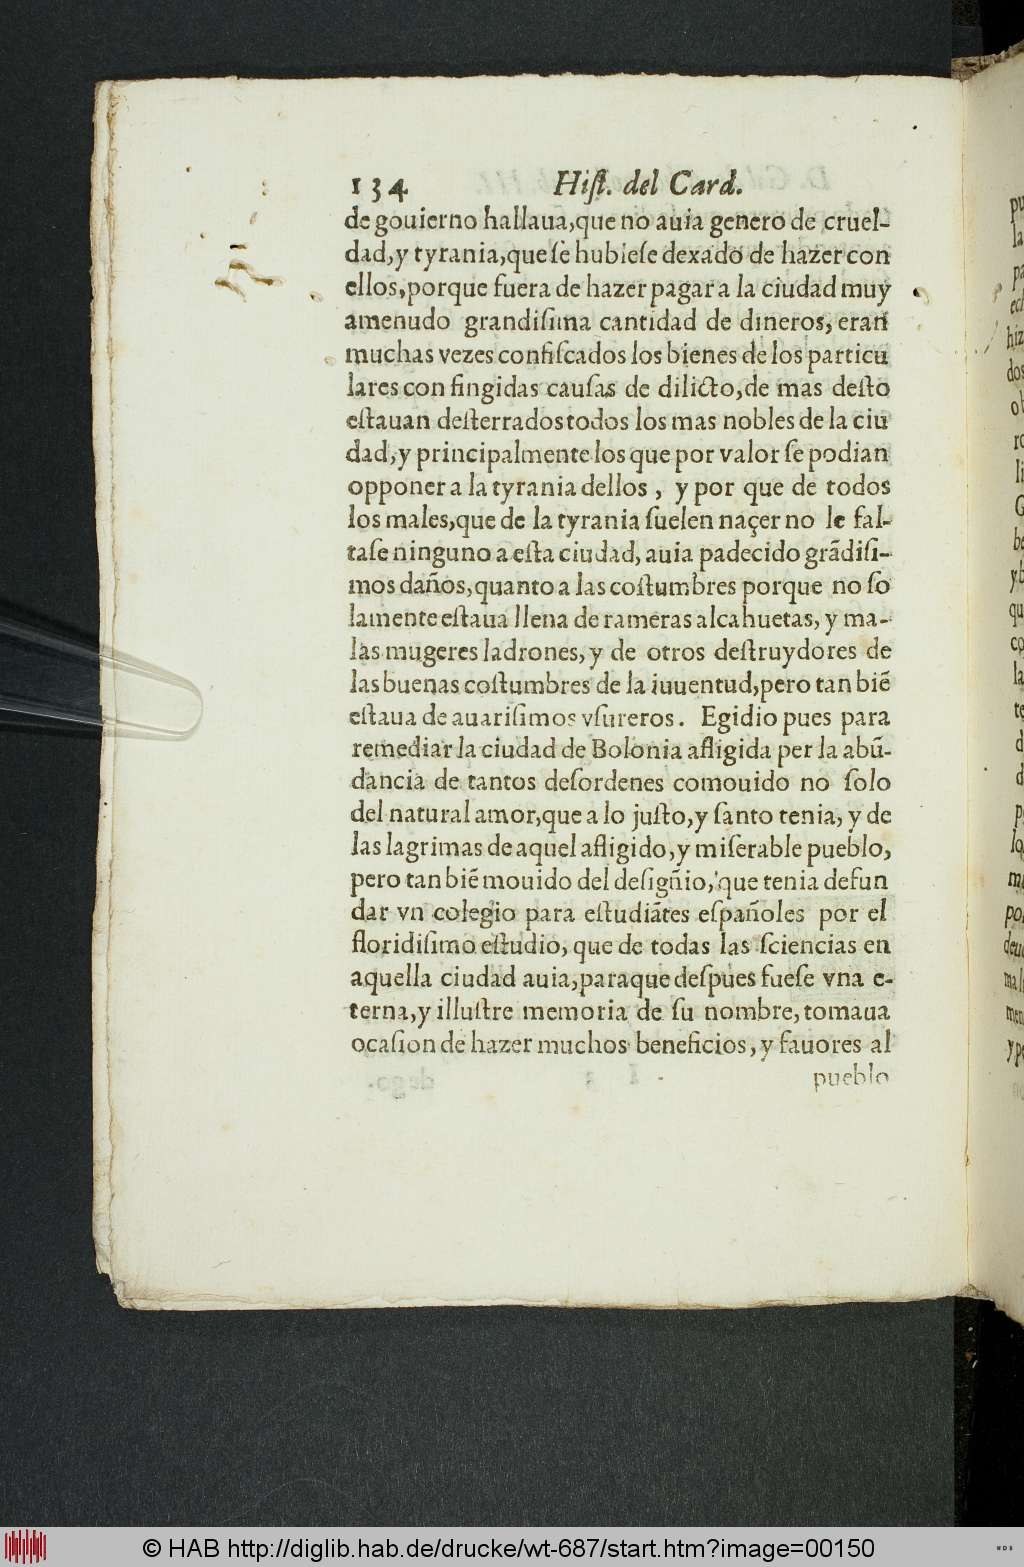 134 Hiſt. del Card.
de gouierno hallaua,que no auia genero de cruel-
dad,y tyrania,que ſe hubieſe dexado de hazer con
ellos,porque fuera de hazer pagar a la ciudad muy
amenudo grandiſima cantidad de dineros, eran
muchas vezes confiſcados los bienes de los particu
lares con fingidas cauſas de dilicto,de mas deſto
eſtauan deſterrados todos los mas nobles de la ciu
dad,y principalmente los que por valor ſe podian
opponer a la tyrania dellos, y por que de todos
los males,que de la tyrania ſuelen naçer no le fal-
taſe ninguno a eſta ciudad, auia padecido grãdiſi-
mos daños,quanto a las coſtumbres porque no ſo
lamente eſtaua llena de rameras alcahuetas, y ma-
las mugeres ladrones, y de otros deſtruydores de
las buenas coſtumbres de la iuuentud,pero tan biẽ
eſtaua de auariſimos vſureros. Egidio pues para
remediar la ciudad de Bolonia afligida per la abũ-
dancia de tantos deſordenes comouido no ſolo
del natural amor,que a lo juſto,y ſanto tenia, y de
las lagrimas de aquel afligido,y miſerable pueblo,
pero tan biẽ mouido del deſigñio, que tenia defun
dar vn colegio para eſtudiãtes eſpañoles por el
floridiſimo eſtudio, que de todas las ſciencias en
aquella ciudad auia,paraque deſpues fueſe vna e-
terna,y illuſtre memoria de ſu nombre, tomaua
ocaſion de hazer muchos beneficios, y fauores al
pueblo
© HAB http://diglib.hab.de/drucke/wt-687/start.htm?image=00150